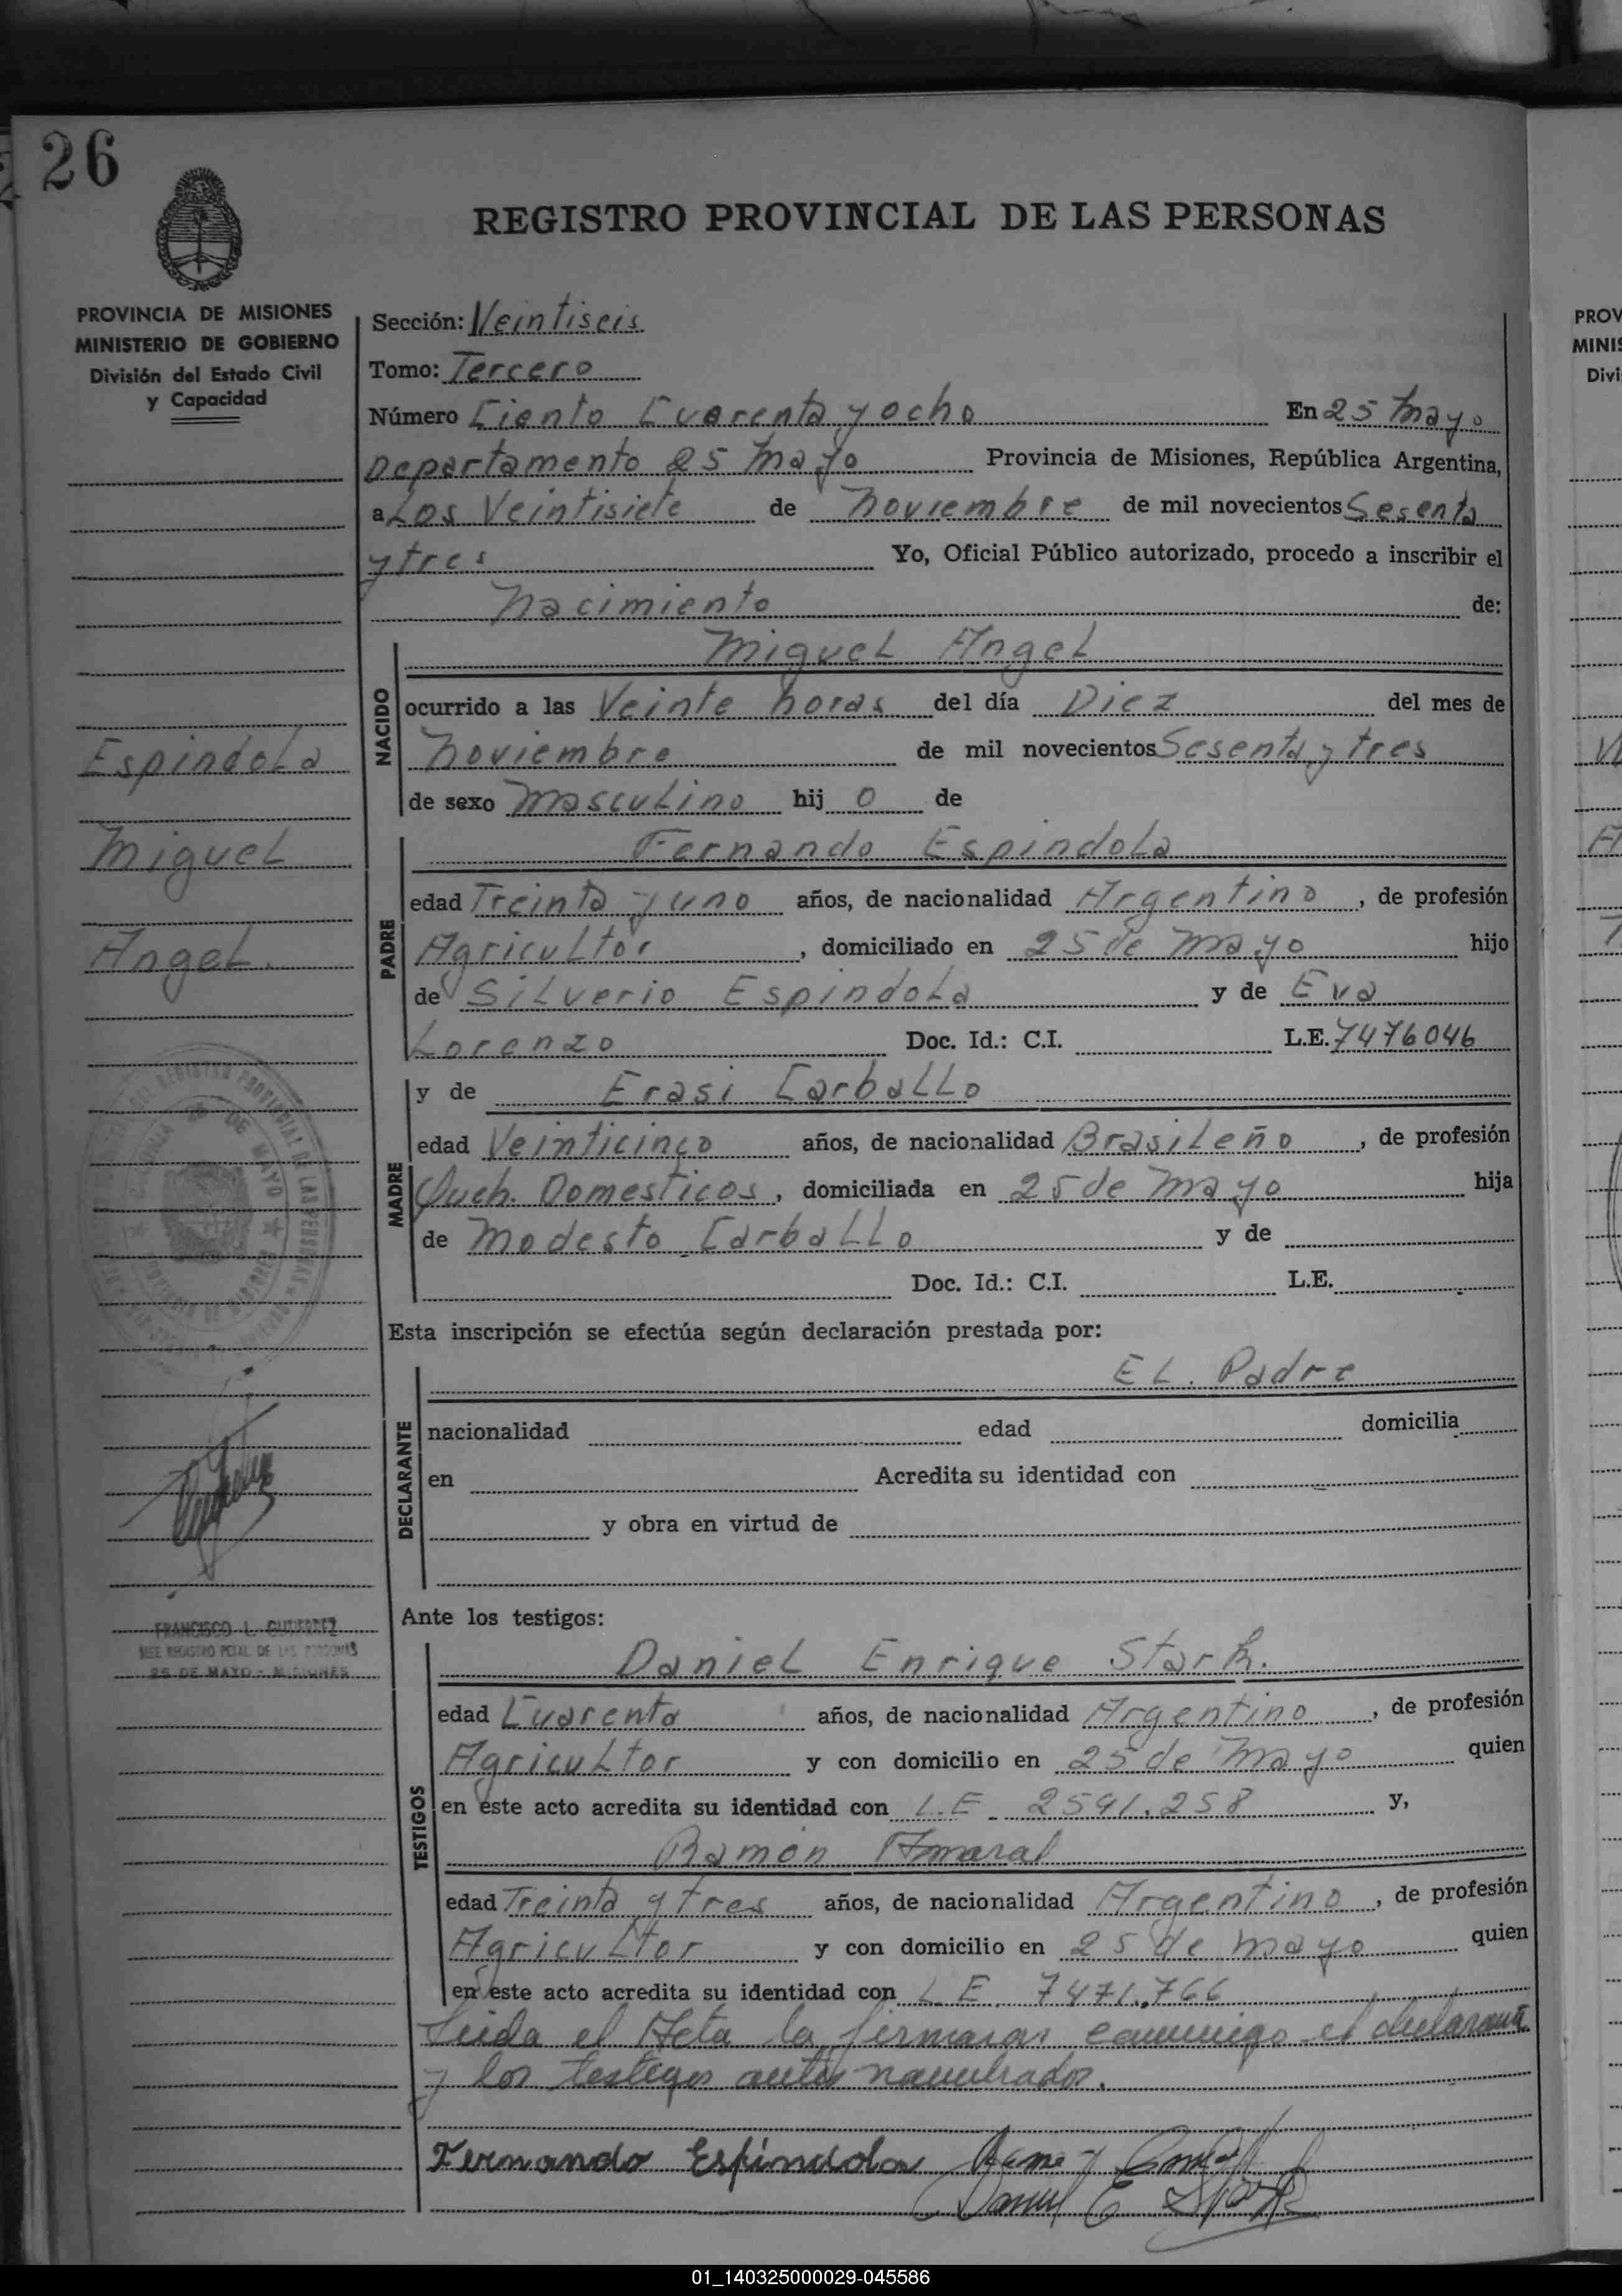 26
REGISTRO PROVINCIAL DE LAS PERSONAS
PROVINCIA DE MISIONES
MINISTERIO DE GOBIERNO
División del Estado Civil
y Capacidad
Sección: Veintiseis
Tomo: Tercero
Número Ciento Cuarenta y ocho En 25 Mayo
Departamento 25 Mayo Provincia de Misiones, República Argentina,
a Los Veintisiete de Noviembre de mil novecientos Sesenta
y tres Yo, Oficial Público autorizado, procedo a inscribir el
Nacimiento de:
NACIDO
Miguel Angel
ocurrido a las Veinte horas del día Diez del mes de
Noviembre de mil novecientos Sesenta y tres
de sexo Masculino hij o de
Espindola
Miguel
Angel.
PADRE
Fernando Espindola
edad Treinta y uno años, de nacionalidad Argentino, de profesión
Agricultor, domiciliado en 25 de Mayo hijo
de Silverio Espindola y de Eva
Lorenzo Doc. Id.: C.I. L.E. 7476046
MADRE
y de Erasi Carballo
edad Veinticinco años, de nacionalidad Brasileño, de profesión
Queh. Domesticos, domiciliada en 25 de Mayo hija
de Modesto Carballo y de
Doc. Id.: C.I. L.E.
Esta inscripción se efectúa según declaración prestada por:
DECLARANTE
EL. Padre
nacionalidad edad domicilia
en Acredita su identidad con
y obra en virtud de
FRANCISCO L. GUTIERREZ
25 DE MAYO - MISIONES
Ante los testigos:
TESTIGOS
Daniel Enrique Stark.
edad Cuarenta años, de nacionalidad Argentino, de profesión
Agricultor y con domicilio en 25 de Mayo quien
en este acto acredita su identidad con L.E. 2591.258 y,
Ramón Amaral
edad Treinta y tres años, de nacionalidad Argentino, de profesión
Agricultor y con domicilio en 25 de Mayo quien
en este acto acredita su identidad con L.E. 7471.766
Leida el Acta la firmaron conmigo el declarante
y los testigos antes nombrados.
Fernando Espíndola
Daniel E Stark
PROV
MINIS
Divi
01_140325000029-045586